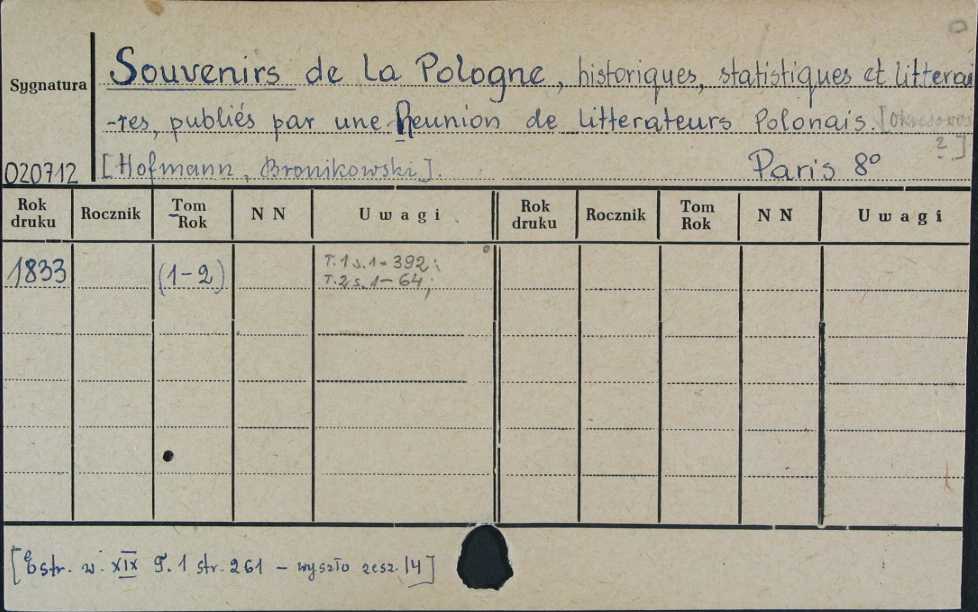 Souvenirs de la Pologne, historiques, statistiques et litterai
Sygnatura
-res, publiés par une Reunion de litterateurs Polonais. [Okresowos
?]
020712 [Hofmann, Bronikowski]. Paris 8°
Rok druku Rocznik Tom Rok N N Uwagi Rok druku Rocznik Tom Rok N N Uwagi
1833 (1-2) T.1 s.1-392;
T.2 s.1-64;
[Estr. w. XIX T.1 str. 261 - wyszło zesz. 14]